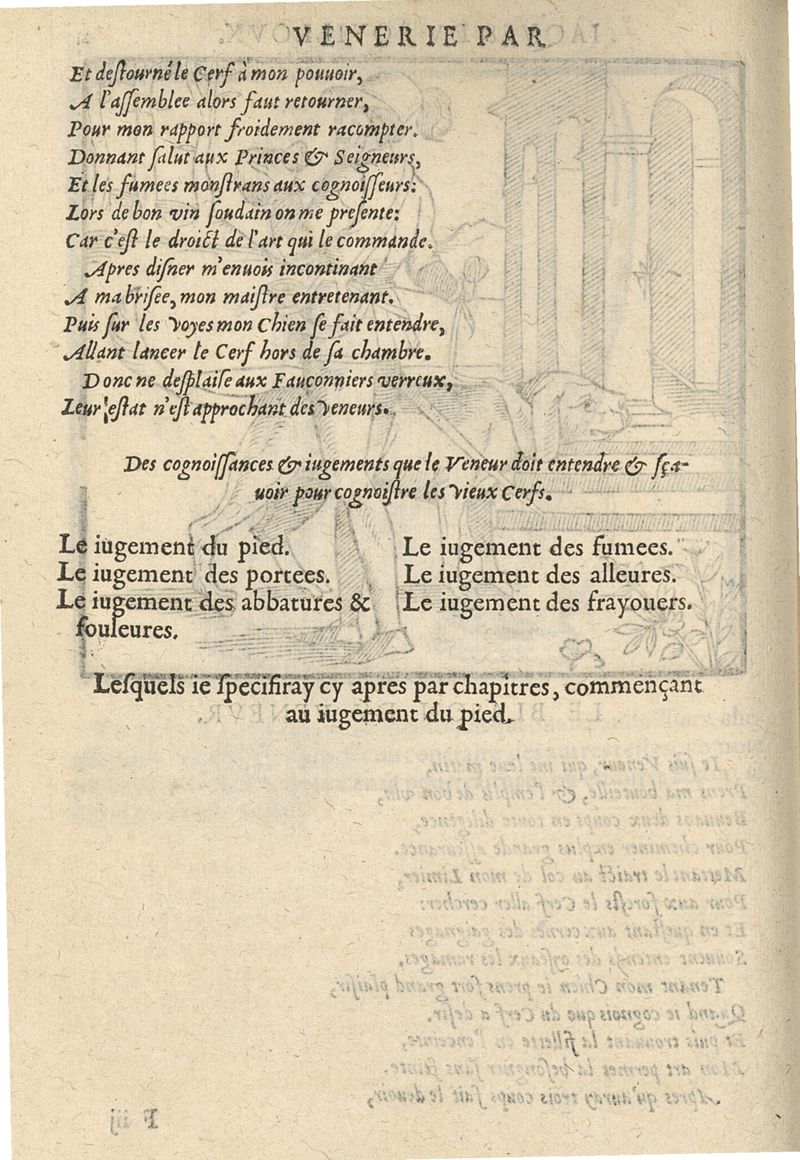 VENERIE PAR
Et destourné le Cerf à mon pouuoir,
A l'assemblee alors faut retourner,
Pour mon rapport froidement racompter.
Donnant salut aux Princes & Seigneurs,
Et les fumees monstrans aux cognoisseurs:
Lors de bon vin soudain on me presente:
Car c'est le droict de l'art qui le commande.
Apres disner m'enuois incontinant
A ma brisée, mon maistre entretenant.
Puis sur les voyes mon Chien se fait entendre,
Allant lancer le Cerf hors de sa chambre.
Donc ne desplaise aux Fauconniers verreux,
Leur estat n'est approchant des Veneurs.
Des cognoissances & iugements que le Veneur doit entendre & sça-
uoir pour cognoistre les vieux Cerfs.
Le iugement du pied.
Le iugement des portees.
Le iugement des abbatures &
fouleures.
Le iugement des fumees.
Le iugement des alleures.
Le iugement des frayouers.
Lesquels ie specifiray cy apres par chapitres, commençant
au iugement du pied.